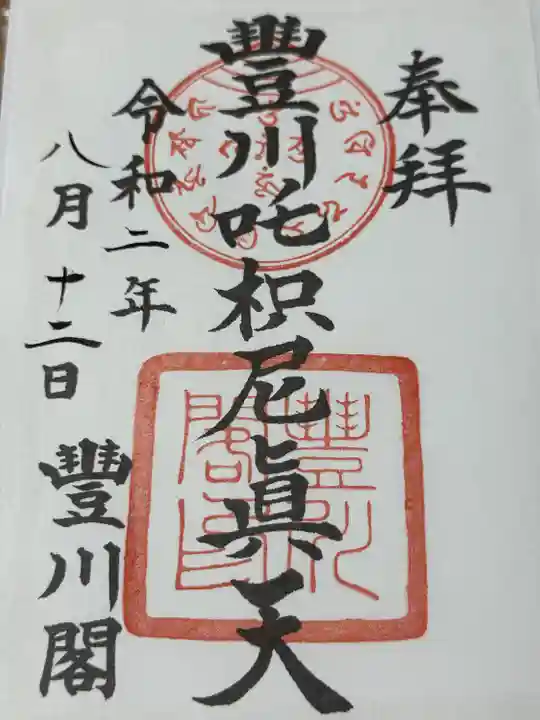 奉拝
豐川吒枳尼眞天
令和二年
八月十二日
豐川閣
豐川
閣印